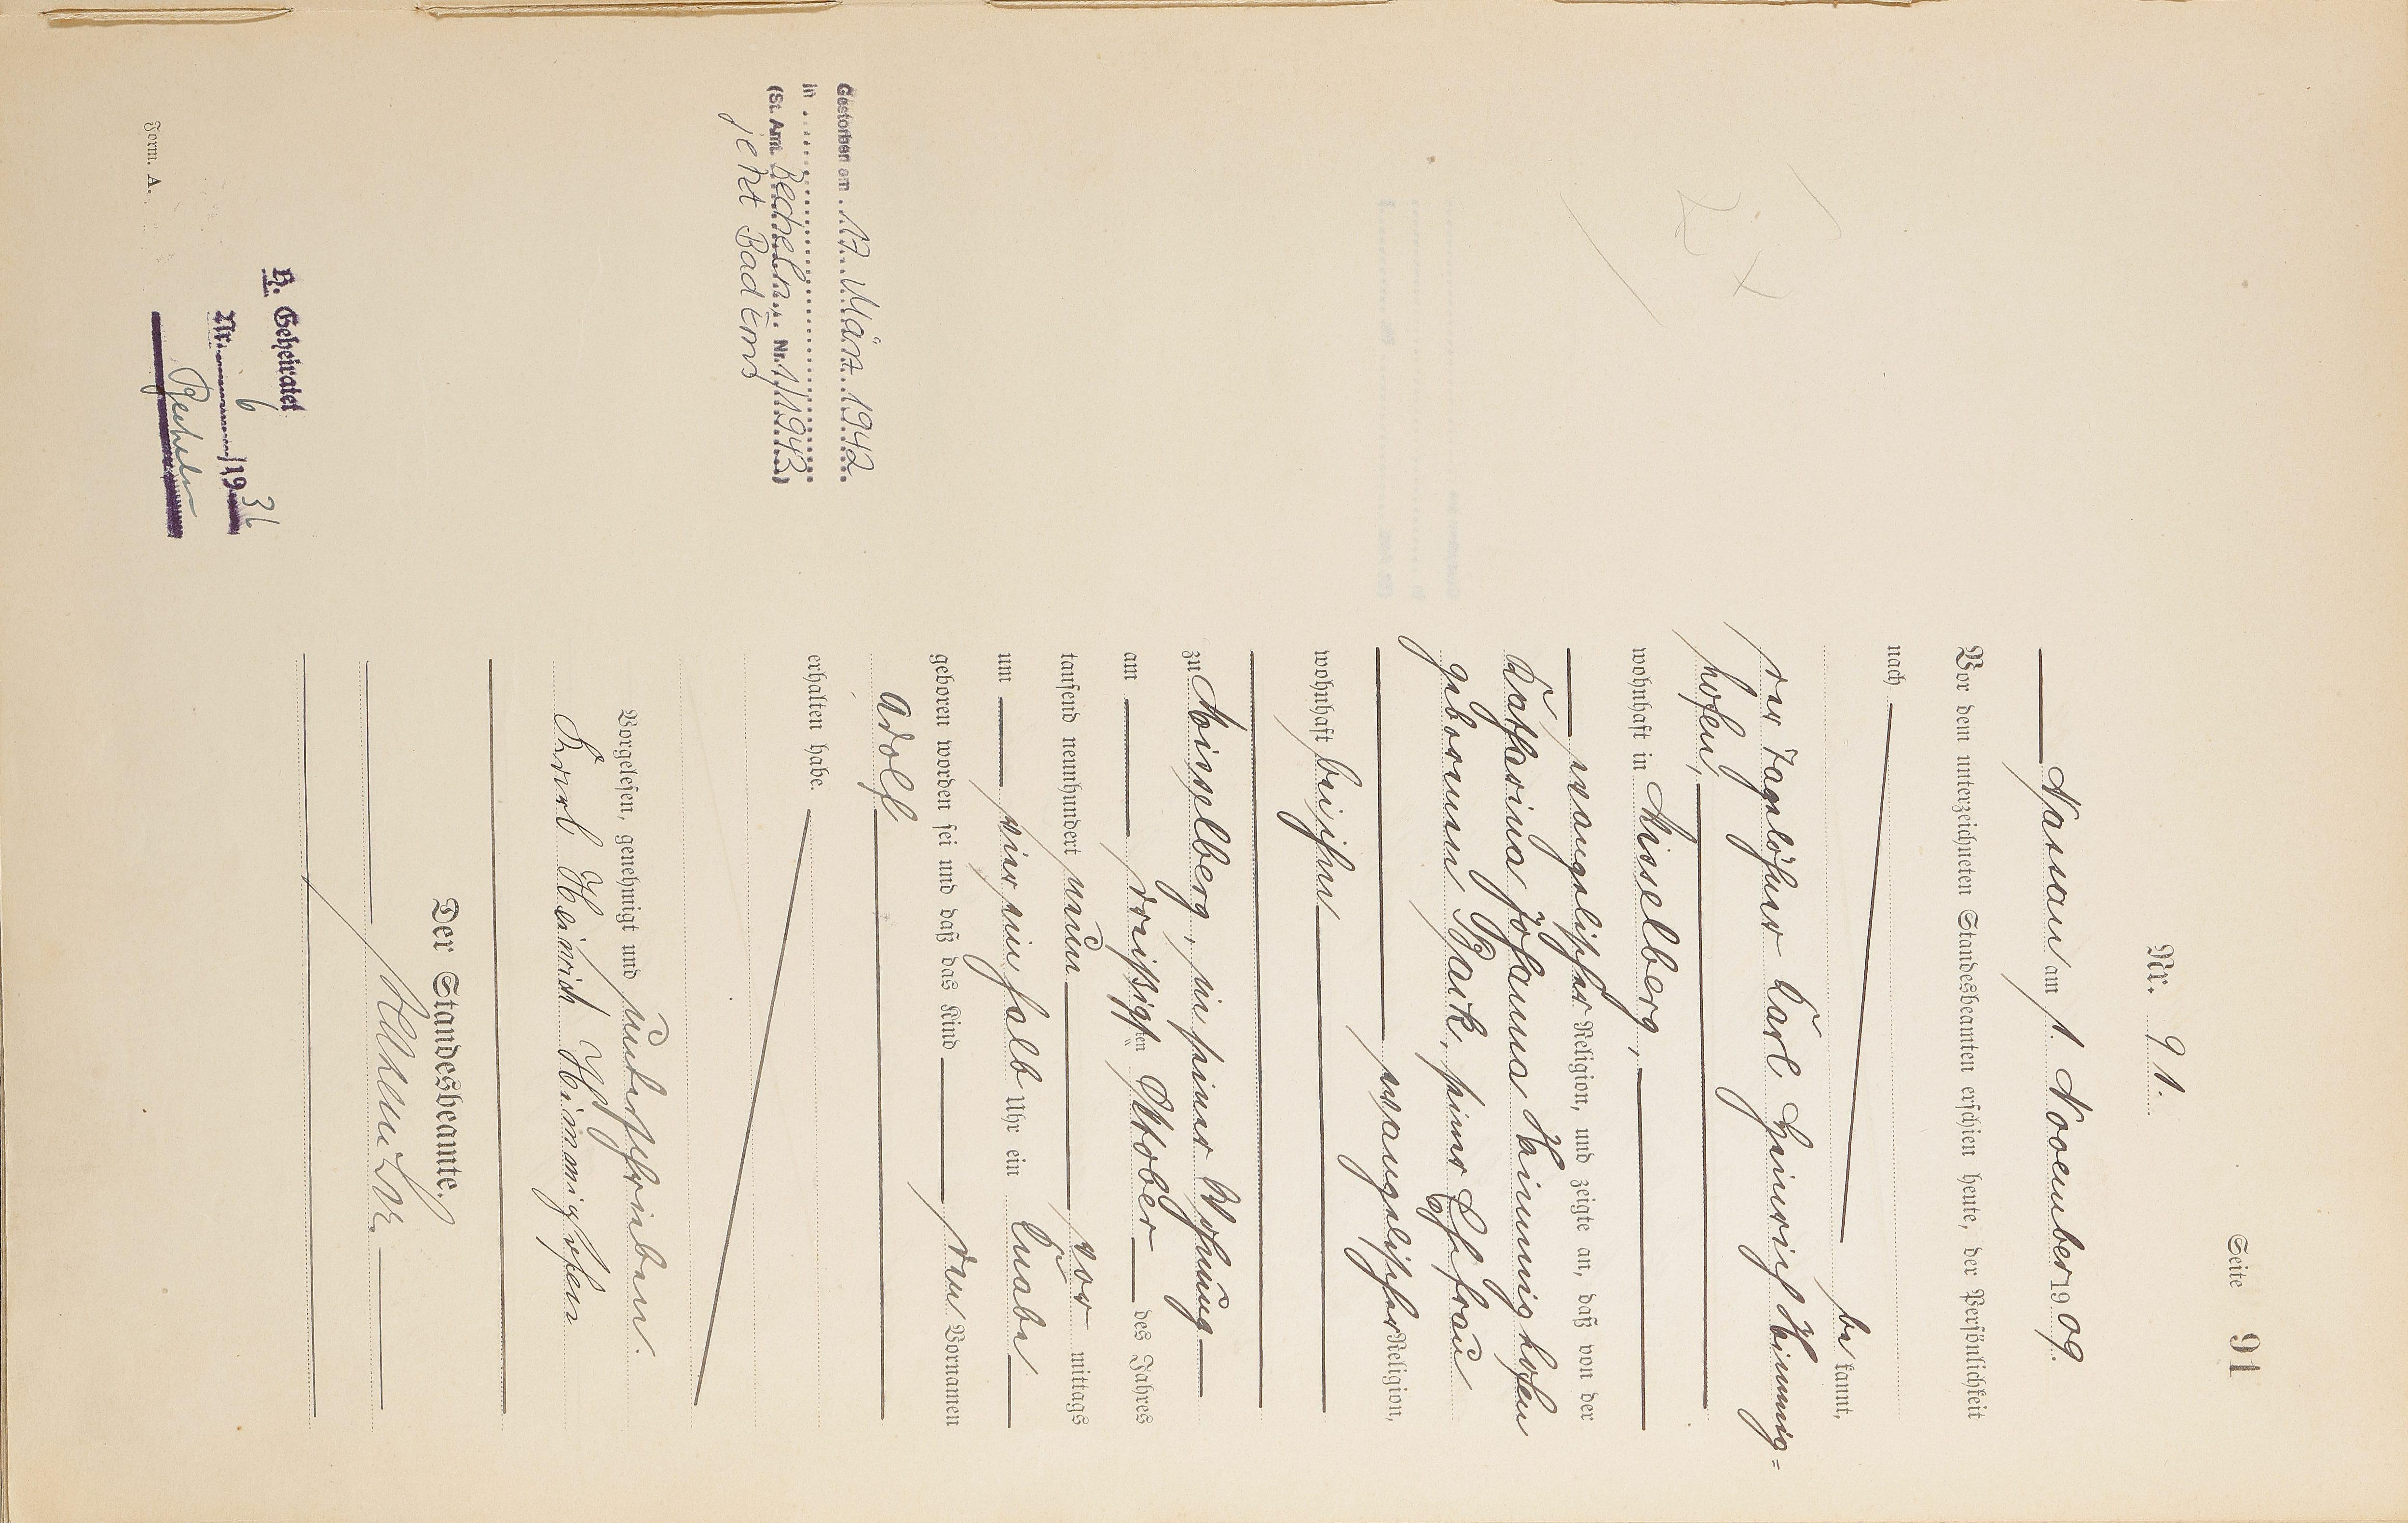 Seite 91
Nr. 91.
Nassau am 1. November 1909.
Vor dem unterzeichneten Standesbeamten erschien heute, der Persönlichkeit
nach
bekannt,
der Tagelöhner Karl Heinrich Heinnig=
hofen,
wohnhaft in Misselberg,
evangelischer Religion, und zeigte an, daß von der
Katharina Johanna Heinnighofen
geborenen Back, seiner Ehefrau
evangelischer Religion,
wohnhaft bei ihm
zu Misselberg, in seiner Wohnung
am dreißigsten Oktober des Jahres
tausend neunhundert neun vor mittags
um vier ein halb Uhr ein Knabe
geboren worden sei und daß das Kind den Vornamen
Adolf
erhalten habe.
Vorgelesen, genehmigt und unterschrieben.
Karl Heinrich Heinnighofen
Der Standesbeamte.
Gestorben am 17. März 1942
in
(St. Amt Becheln Nr. 1/1943)
jetzt Bad Ems
H. Geheiratet
Nr. 6 /1936
Becheln
Form. A.